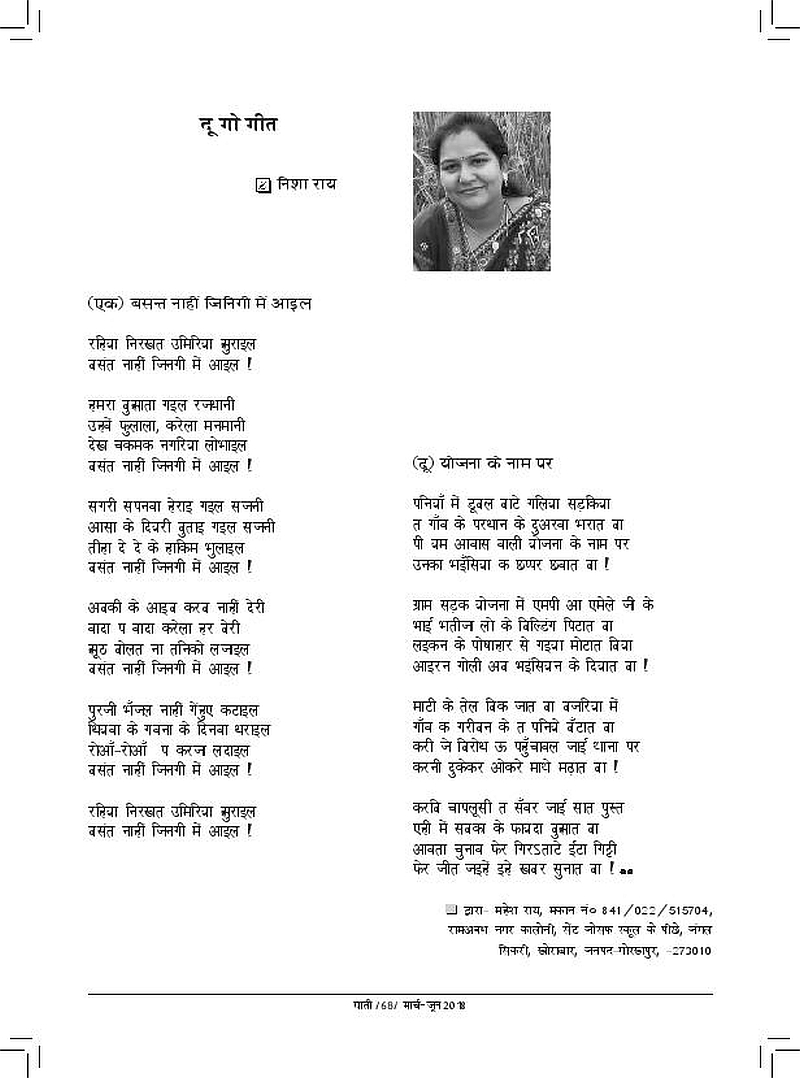 दू गो गीत
निशा राय
(एक) बसन्त नाहीं जिनिगी में आइल
रहिया निरखत उमिरिया झुराइल
बसंत नाहीं जिनगी में आइल !
हमरा बुझाता गइल रजधानी
उहवें फुलाला, करेला मनमानी
देख चकमक नगरिया लोभाइल
बसंत नाहीं जिनगी में आइल !
सगरी सपनवा हेराइ गइल सजनी
आसा के दियरी बुताइ गइल सजनी
तीहा दे दे के हाकिम भुलाइल
बसंत नाहीं जिनगी में आइल !
अबकी के आइब करब नाहीं देरी
वादा प वादा करेला हर बेरी
झूठ बोलत ना तनिको लजाइल
बसंत नाहीं जिनगी में आइल !
पुरजी भँजल नाहीं गेंहुए कटाइल
धियवा के गवना के दिनवा धराइल
रोआँ-रोआँ प करजा लदाइल
बसंत नाहीं जिनगी में आइल !
रहिया निरखत उमिरिया झुराइल
बसंत नाहीं जिनगी में आइल !
(दू) योजना के नाम पर
पनियाँ में डूबल बाटे गलिया सड़किया
त गाँव के परधान के दुअरवा भरात बा
पी यम आवास वाली योजना के नाम पर
उनका भइँसिया क छप्पर छवात बा !
ग्राम सड़क योजना में एमपी आ एमेले जी के
भाई भतीजा लो के बिल्डिंग पिटात बा
लइकन के पोषाहार से गइया मोटात बिया
आइरन गोली अब भइंसियन के दियात बा !
माटी के तेल बिक जात बा बजरिया में
गाँव क गरीबन के त पनिये बँटात बा
करी जे बिरोध ऊ पहुँचावल जाई थाना पर
करनी दुकेकर ओकरे माथे मढ़ात बा !
करबि चापलूसी त सँवर जाई सात पुस्त
एही में सबका के फायदा बुझात बा
आवता चुनाव फेर गिरऽताटे ईंटा गिट्टी
फेर जीत जइहें इहे खबर सुनात बा !
द्वारा- महेश राय, मकान नं० 841/022/515704,
रामअवध नगर कालोनी, सेंट जोसफ स्कूल के पीछे, जंगल
सिकरी, खोराबार, जनपद-गोरखपुर, -273010
पाती /68/ मार्च-जून 2018